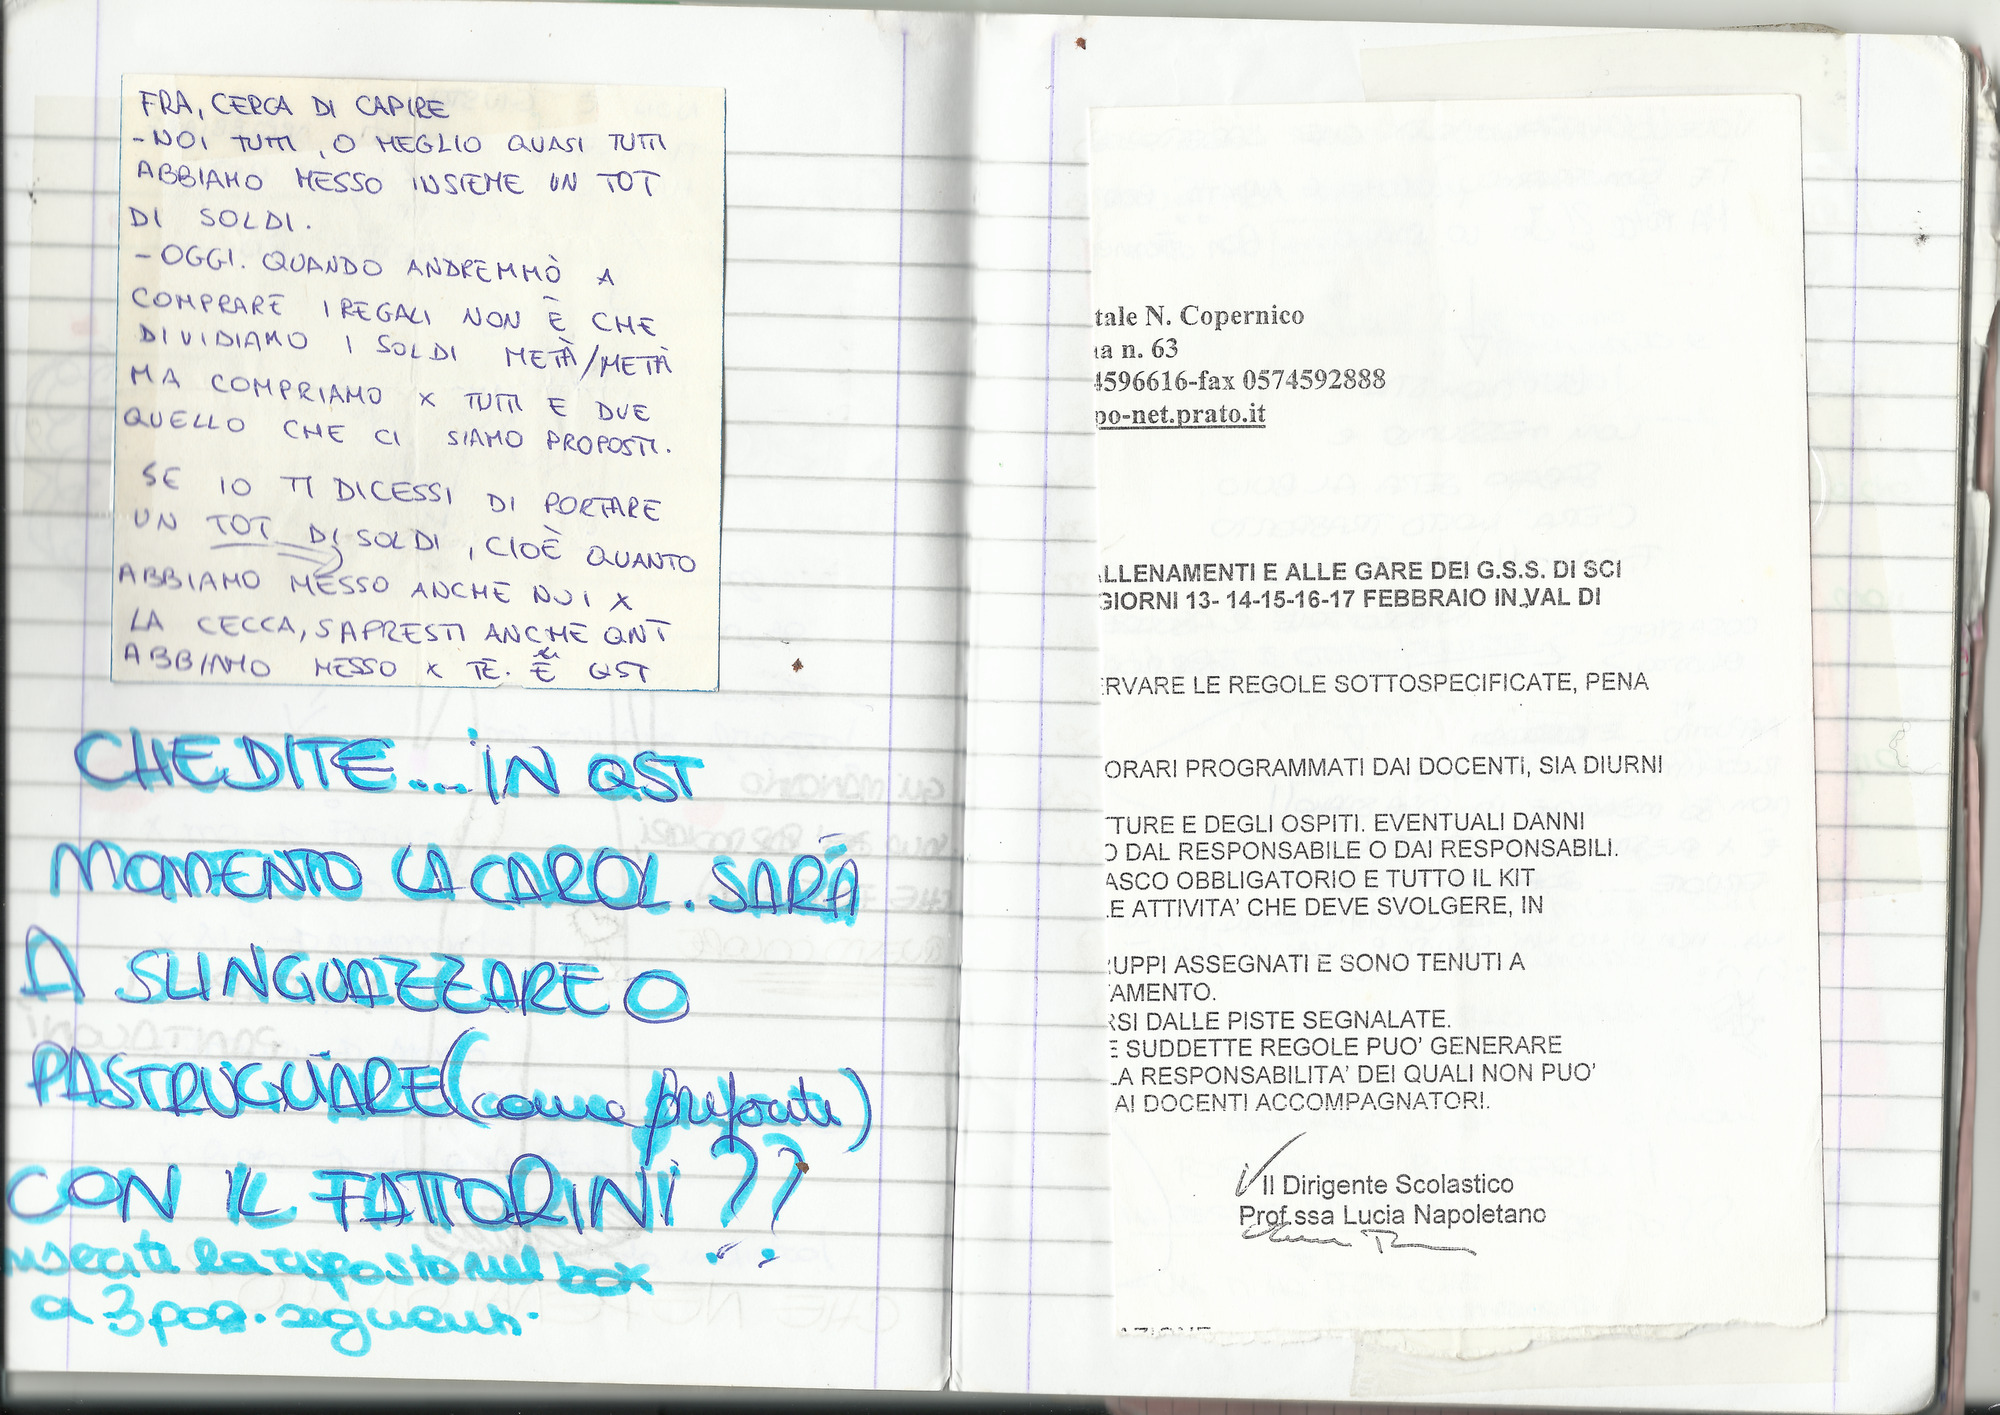 FRA, CERCA DI CAPIRE
- NOI TUTTI, O MEGLIO QUASI TUTTI
ABBIAMO MESSO INSIEME UN TOT
DI SOLDI.
- OGGI. QUANDO ANDREMMÒ A
COMPRARE I REGALI NON È CHE
DIVIDIAMO I SOLDI METÀ/METÀ
MA COMPRIAMO X TUTTI E DUE
QUELLO CHE CI SIAMO PROPOSTI.
SE IO TI DICESSI DI PORTARE
UN TOT DI SOLDI, CIOÈ QUANTO
ABBIAMO MESSO ANCHE NOI X
LA CECCA, SAPRESTI ANCHE QNT
ABBIAMO MESSO X TE. E QST
CHE DITE... IN QST
MOMENTO LA CAROL. SARÀ
A SLINGUAZZARE O
PASTRUGUIARE (come preferite)
CON IL FATTORINI??
inserite la risposta nel box
a 3 pag. seguenti.
tale N. Copernico
na n. 63
4596616-fax 0574592888
po-net.prato.it
LLENAMENTI E ALLE GARE DEI G.S.S. DI SCI
GIORNI 13- 14-15-16-17 FEBBRAIO IN VAL DI
ERVARE LE REGOLE SOTTOSPECIFICATE, PENA
ORARI PROGRAMMATI DAI DOCENTI, SIA DIURNI
TTURE E DEGLI OSPITI. EVENTUALI DANNI
O DAL RESPONSABILE O DAI RESPONSABILI.
ASCO OBBLIGATORIO E TUTTO IL KIT
LE ATTIVITA' CHE DEVE SVOLGERE, IN
RUPPI ASSEGNATI E SONO TENUTI A
TAMENTO.
RSI DALLE PISTE SEGNALATE.
E SUDDETTE REGOLE PUO' GENERARE
LA RESPONSABILITA' DEI QUALI NON PUO'
AI DOCENTI ACCOMPAGNATORI.
Il Dirigente Scolastico
Prof.ssa Lucia Napoletano